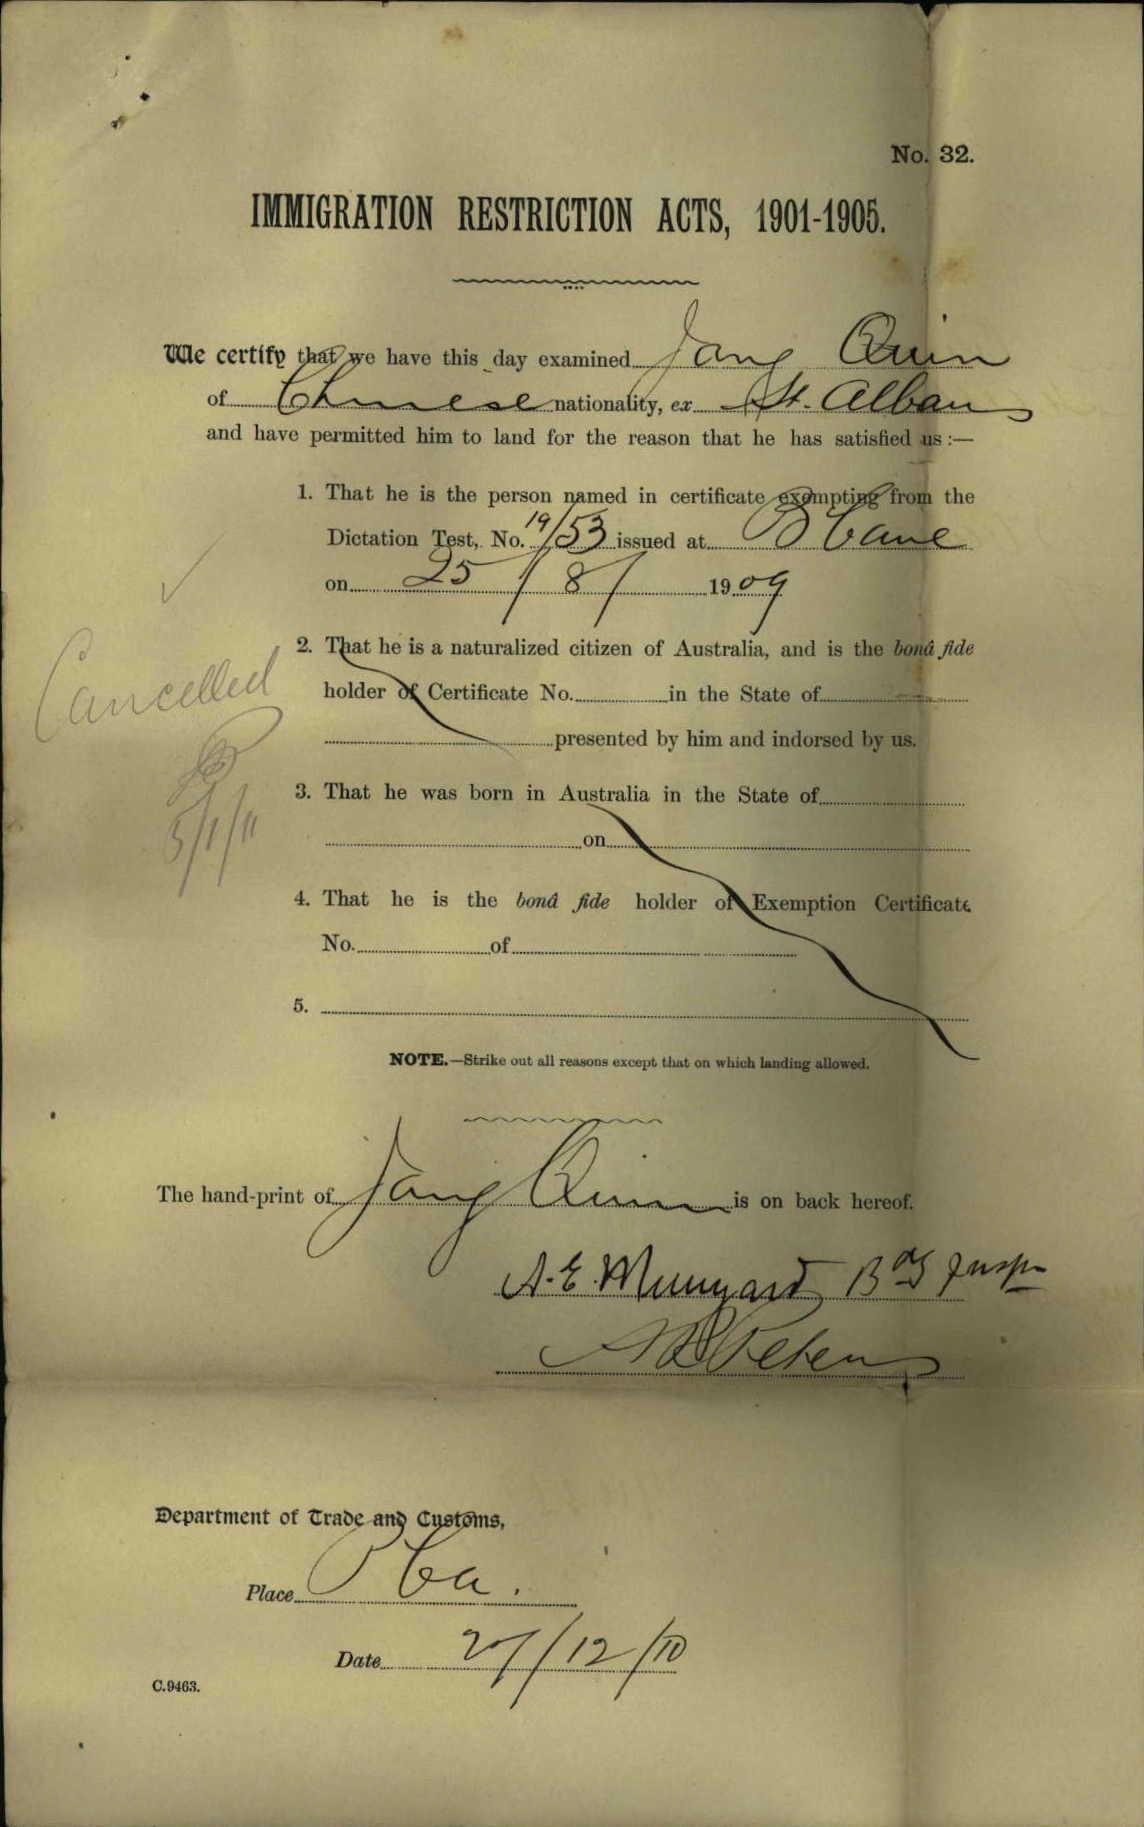 No. 32.
IMMIGRATION RESTRICTION ACTS, 1901-1905.
We certify that we have this day examined Jang Quin
of Chinese nationality, ex St. Albans
and have permitted him to land for the reason that he has satisfied us :—
1. That he is the person named in certificate exempting from the
Dictation Test, No. 19/53 issued at Bbane
on 25/8/ 1909
2. That he is a naturalized citizen of Australia, and is the bonâ fide
holder of Certificate No. in the State of
presented by him and indorsed by us.
Cancelled
5/1/11
3. That he was born in Australia in the State of
on
4. That he is the bonâ fide holder of Exemption Certificate
No. of
5.
NOTE.—Strike out all reasons except that on which landing allowed.
The hand-print of Jang Quin is on back hereof.
A. E.
Department of Trade and Customs,
Place
Date 27/12/10
C.9463.